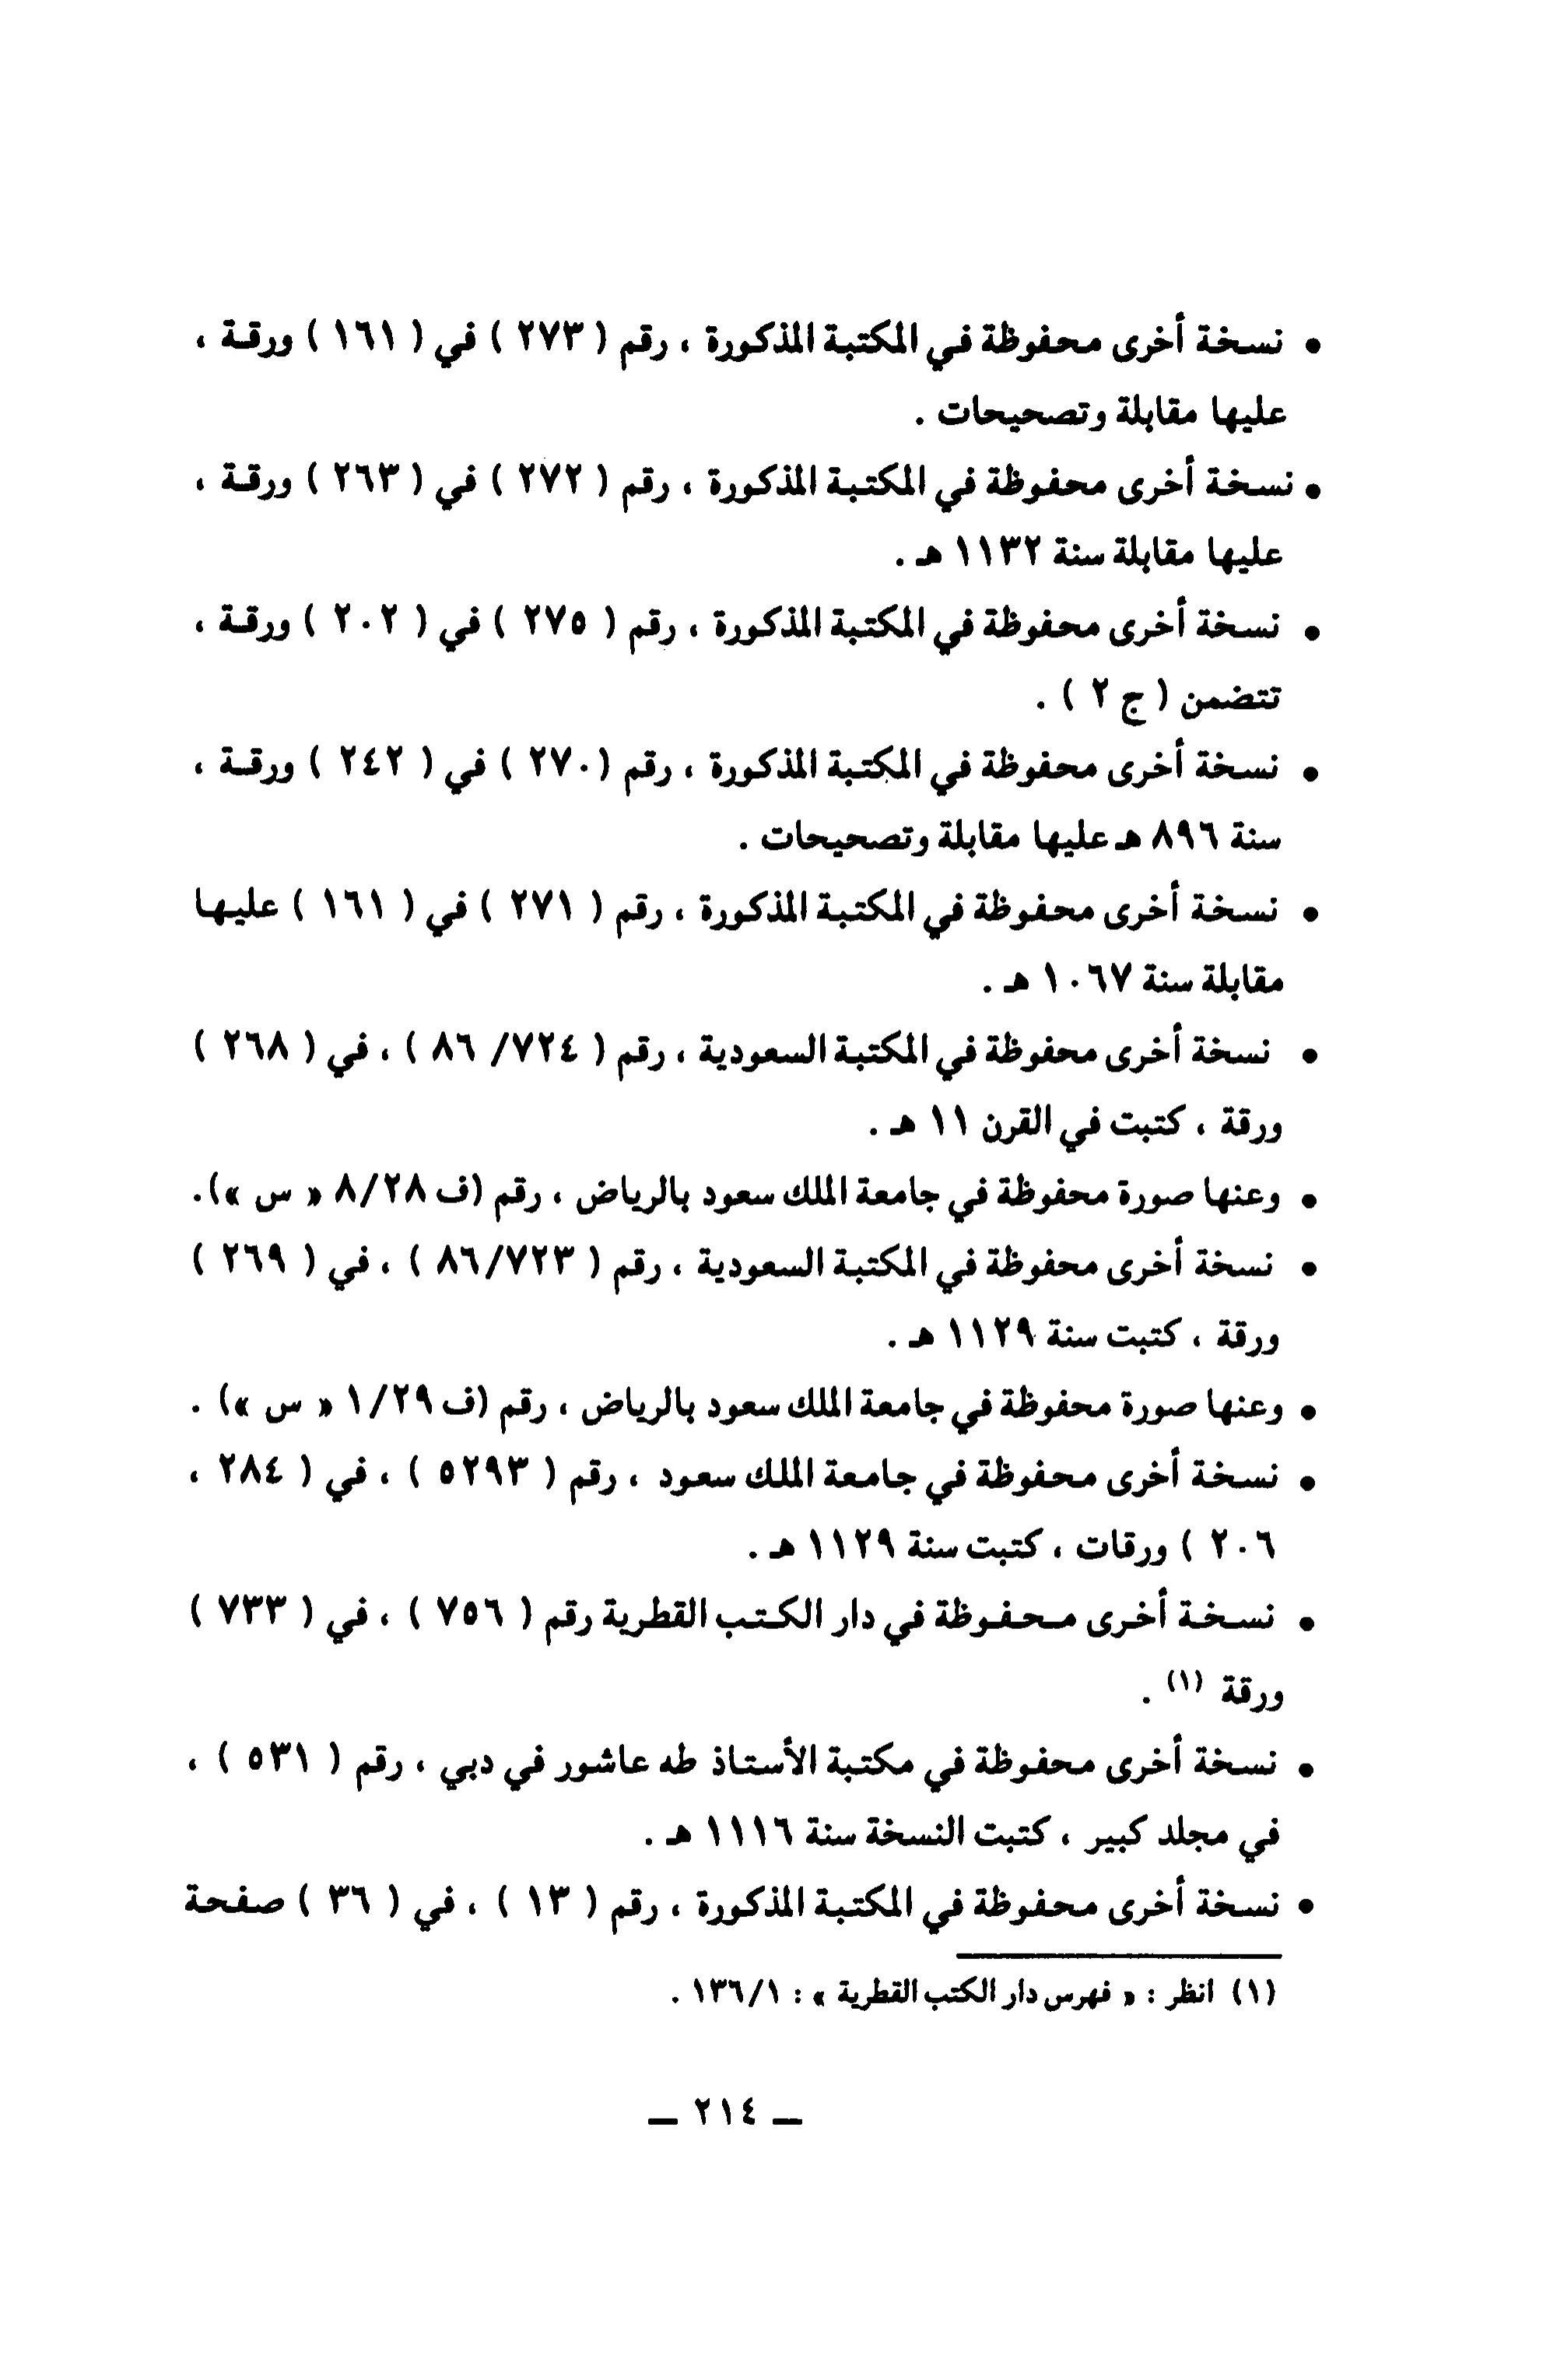 • نسخة أخرى محفوظة في المكتبة المذكورة ، رقم ( ٢٧٣ ) في ( ١٦١ ) ورقة ،
عليها مقابلة وتصحيحات .
• نسخة أخرى محفوظة في المكتبة المذكورة ، رقم ( ٢٧٢ ) في ( ٢٦٣ ) ورقة ،
عليها مقابلة سنة ١١٣٢ هـ .
• نسخة أخرى محفوظة في المكتبة المذكورة ، رقم ( ٢٧٥ ) في ( ٢٠٢ ) ورقة ،
تتضمن ( ج ٢ ) .
• نسخة أخرى محفوظة في المكتبة المذكورة ، رقم (٢٧٠ ) في ( ٢٤٢ ) ورقة ،
سنة ٨٩٦ هـ عليها مقابلة وتصحيحات .
• نسخة أخرى محفوظة في المكتبة المذكورة ، رقم ( ٢٧١ ) في ( ١٦١ ) عليها
مقابلة سنة ١٠٦٧ هـ .
• نسخة أخرى محفوظة في المكتبة السعودية ، رقم ( ٧٢٤/ ٨٦ ) ، في ( ٢٦٨ )
ورقة ، كتبت في القرن ١١ هـ .
• وعنها صورة محفوظة في جامعة الملك سعود بالرياض ، رقم (ف ٨/٢٨ « س »).
• نسخة أخرى محفوظة في المكتبة السعودية ، رقم ( ٨٦/٧٢٣ ) ، في ( ٢٦٩ )
ورقة ، كتبت سنة ١١٢٩ هـ .
• وعنها صورة محفوظة في جامعة الملك سعود بالرياض ، رقم (ف ١/٢٩ « س ») .
• نسخة أخرى محفوظة في جامعة الملك سعود ، رقم ( ٥٢٩٣ ) ، في ( ٢٨٤ ،
٢٠٦ ) ورقات ، كتبت سنة ١١٢٩ هـ .
• نسخة أخرى محفوظة في دار الكتب القطرية رقم ( ٧٥٦ ) ، في ( ٧٣٣ )
ورقة (١) .
• نسخة أخرى محفوظة في مكتبة الأستاذ طه عاشور في دبي ، رقم ( ٥٣١ ) ،
في مجلد كبير ، كتبت النسخة سنة ١١١٦ هـ .
• نسخة أخرى محفوظة في المكتبة المذكورة ، رقم ( ١٣ ) ، في ( ٣٦ ) صفحة
(١) انظر : « فهرس دار الكتب القطرية » : ١٣٦/١ .
ـ ٢١٤ ـ